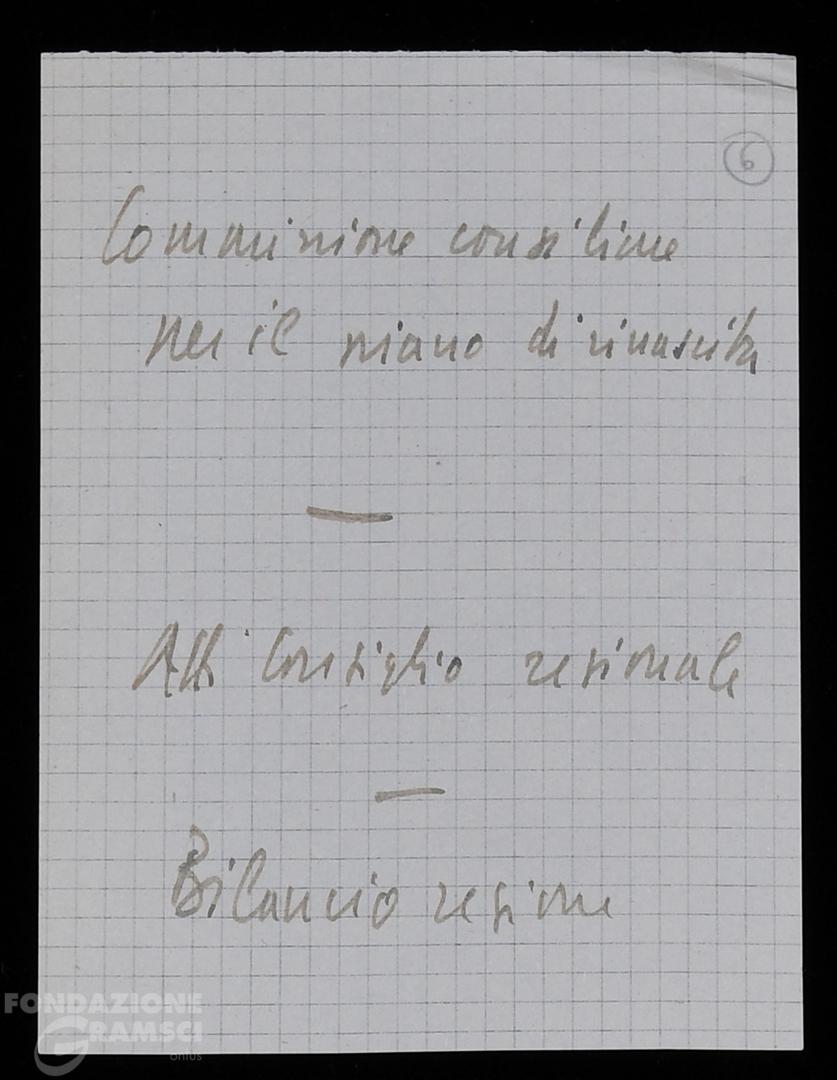 6
Commissione consiliare
per il piano di rinascita
—
Atti Consiglio regionale
—
Bilancio regione
FONDAZIONE
GRAMSCI
onlus